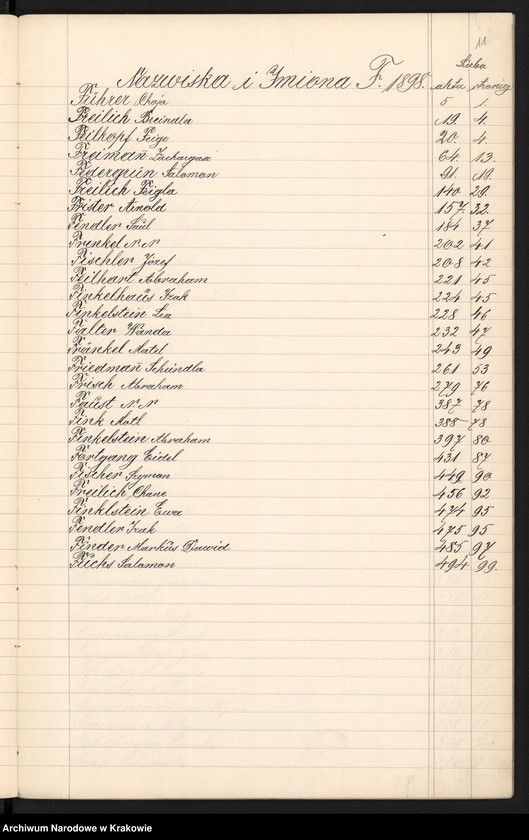 11
Liczba
Nazwiska i Imiona F. 1898. aktu stronicy
Führer Chaja 5 1.
Freilich Breindla 19. 4.
Feilkopf Feige 20. 4.
Freimañ Zacharyasz 64 13.
Federgrün Salomon 91. 19.
Freilich Feigla 140 29.
Frister Arnold 157. 32.
Fendler Saul 184 37
Frenkel N N 202 41
Fischler Józef 208 42
Feilhart Abraham 221 45
Finkelhaus Izak 224 45
Finkelstein Lea 228 46
Falter Wanda 232 47
Fränkel Matel 243 49
Friedmañ Scheindla 261 53
Frisch Abraham 279 76
Faust N N 387 78
Fink Motl 388 78
Finkelstein Abraham 397 80
Fortgang Eidel 431 87
Fischer Szymon 449 90
Freilich Chane 456 92
Finklstein Ewa 474 95
Fendler Izak 475 95
Finder Markus Dawid 485 97
Füchs Salomon 494 99.
Archiwum Narodowe w Krakowie